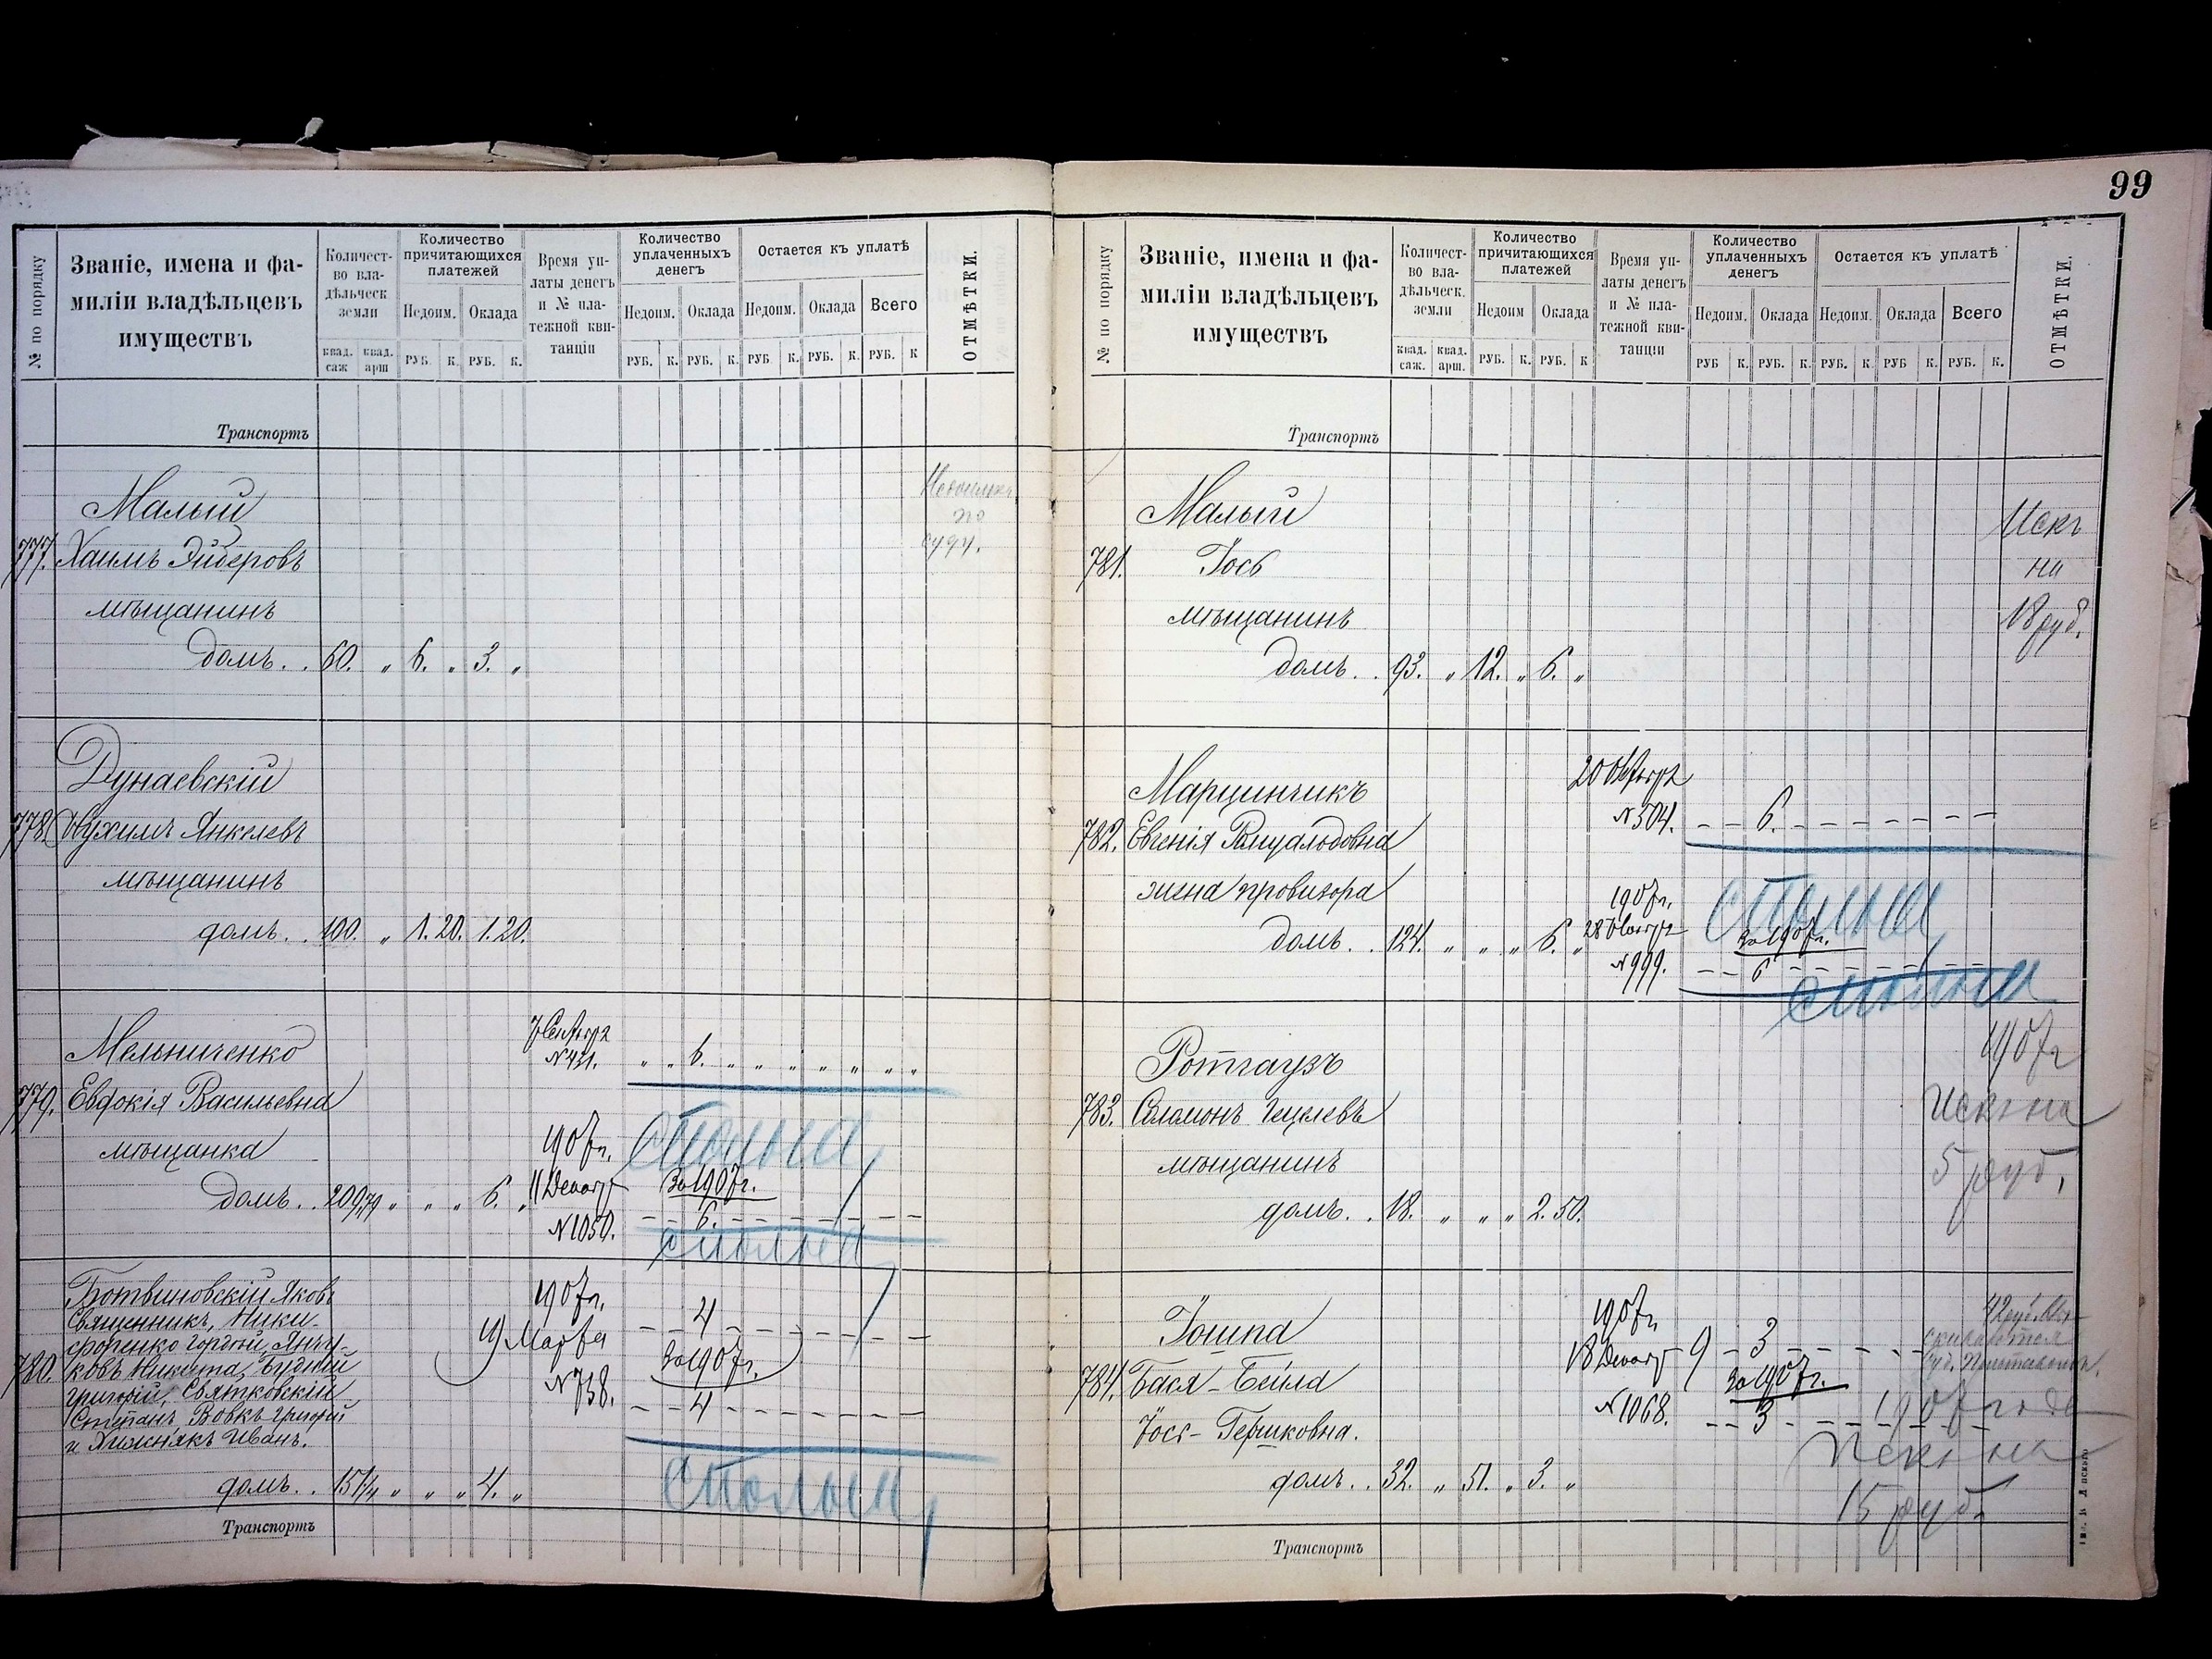 99
№ по порядку
Званіе, имена и фа-
миліи владѣльцевъ
имуществъ
Количест-
во вла-
дѣльческ
земли
квад. саж
квад. арш
Количество
причитающихся
платежей
Недоим. Оклада
РУБ. К. РУБ. К.
Время уп-
латы денегъ
и № пла-
тежной кви-
танціи
Количество
уплаченныхъ
денегъ
Недоим. Оклада
РУБ. К. РУБ. К.
Остается къ уплатѣ
Недоим. Оклада Всего
РУБ К. РУБ. К. РУБ. К
ОТМѢТКИ.
Транспортъ
Малый
777. Хаимъ
мѣщанинъ
домъ. . 60. „ 6. „ 3. „
Дунаевскій
778. Нухимъ Янкелевъ
мѣщанинъ
домъ. . 100. „ 1. 20. 1. 20.
Мельниченко
7 Сентября
№ 431. „ „ 6. „ „ „ „ „ „ „
779. Евдокія Васильевна
мѣщанка
1907 г.
домъ. . „ „ „ 6. „
За 1907 г.
№ 1050. 6.
Ботвиновскій Яковъ
Священникъ, Ники-
форенко Гордѣй,
780. Никита,
Григорій, Святковскій
Степанъ, Вовкъ Григорій
и Хижнякъ Иванъ.
1907 г.
4
9 Марта
За 1907 г.
№ 738.
4
домъ. . 15¼ „ „ „ 4. „
Транспортъ
№ по порядку
Званіе, имена и фа-
миліи владѣльцевъ
имуществъ
Количест-
во вла-
дѣльческ.
земли
квад. саж.
квад. арш.
Количество
причитающихся
платежей
Недоим Оклада
РУБ. К. РУБ. К
Время уп-
латы денегъ
и № пла-
тежной кви-
танціи
Количество
уплаченныхъ
денегъ
Недоим. Оклада
РУБ К. РУБ. К.
Остается къ уплатѣ
Недоим. Оклада Всего
РУБ. К. РУБ К. РУБ. К.
ОТМѢТКИ.
Транспортъ
Малый
781. Іось
мѣщанинъ
домъ. . 93. „ 12. „ 6. „
Искъ
на
18 руб.
Марцинчикъ
20 Октября
№ 504. 6.
782. Евгенія Ромуальдовна
жена провизора
1907 г.
домъ. . 124. „ „ „ 6. „
28 Ноября
За 1907 г.
№ 999. 6
Ротгаузъ
783. Соломонъ Гецелевъ
мѣщанинъ
домъ. . 18. „ „ „ 2. 50.
1907 г
Искъ на
5 руб.
Іошпа
784. Бася-Бейла
Іось-Гершковна.
домъ. . 32. „ 51. „ 3. „
1907 г
9 3
За 1907 г.
№ 1068. 3
1907 года
Искъ на
15 руб.
Транспортъ